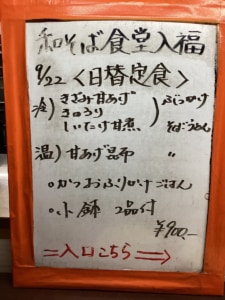 和そば食堂入福
9/22 〈日替定食〉
冷) きざみ甘あげ
きゅうり
しいたけ甘煮
) ぶっかけ
そばうどん
温) 甘あげ昆布 〃
○かつおふりかけごはん
○小鉢 2品付
¥900.-
=入口こちら=⇒